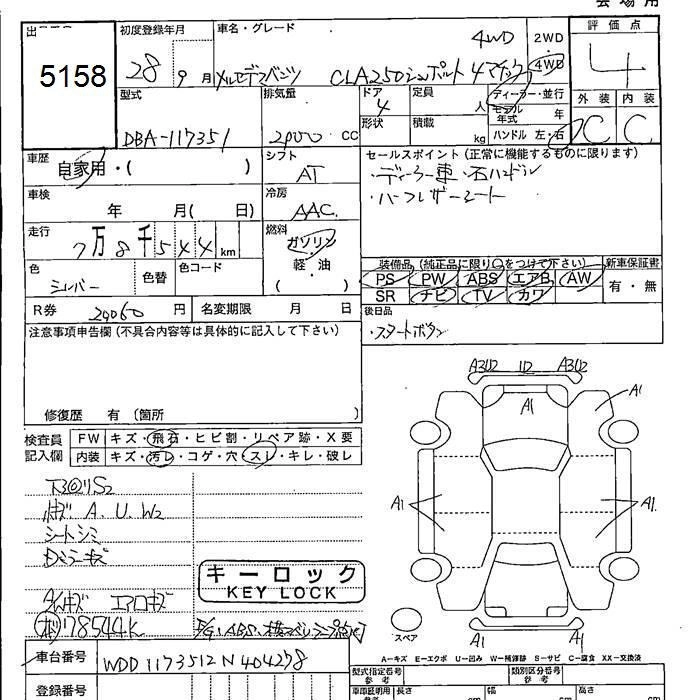 会場用
出
5158
初度登録年月
28年9月
車名・グレード
4WD
メルセデスベンツ CLA250シュポルト4マチック
2WD
・
4WD
評価点
4
外装 内装
C C
型式
DBA-117351
排気量
2000 CC
ドア
4
形状
定員
人
積載
kg
ディーラー・並行
モデル年式 年
ハンドル 左・右
車歴
自家用・( )
シフト
AT
セールスポイント(正常に機能するものに限ります)
・ディーラー車・右ハンドル
・ハーフレザーシート
車検
年 月( 日)
冷房
AAC.
走行
7万8千544km
燃料
ガソリン
・
軽・油
( )
色
シルバー
色替
色コード
装備品(純正品に限り○をつけて下さい)
新車保証書
PS PW ABS エアB AW
有・無
SR ナビ TV カワ
R券
20060円
名変期限 月 日
後日品
・スタートボタン
注意事項申告欄(不具合内容等は具体的に記入して下さい)
修復歴 有(箇所 )
検査員
記入欄
FW キズ・飛石・ヒビ割・リペア跡・X要
内装 キズ・汚レ・コゲ・穴・スレ・キレ・破レ
A.U.W2
シートシミ
エアロキズ
78544K
キーロック
KEY LOCK
A3U2 U2 A3U2
A1
A1
A1
A1
A1
A1
スペア
A=キズ E=エクボ U=凹み W=補修跡 S=サビ C=腐食 XX=交換済
車台番号
WDD1173512N404278
登録番号
型式指定番号
参考
類別区分番号
参考
車庫証明用
参考
長さ
cm
幅
cm
高さ
cm